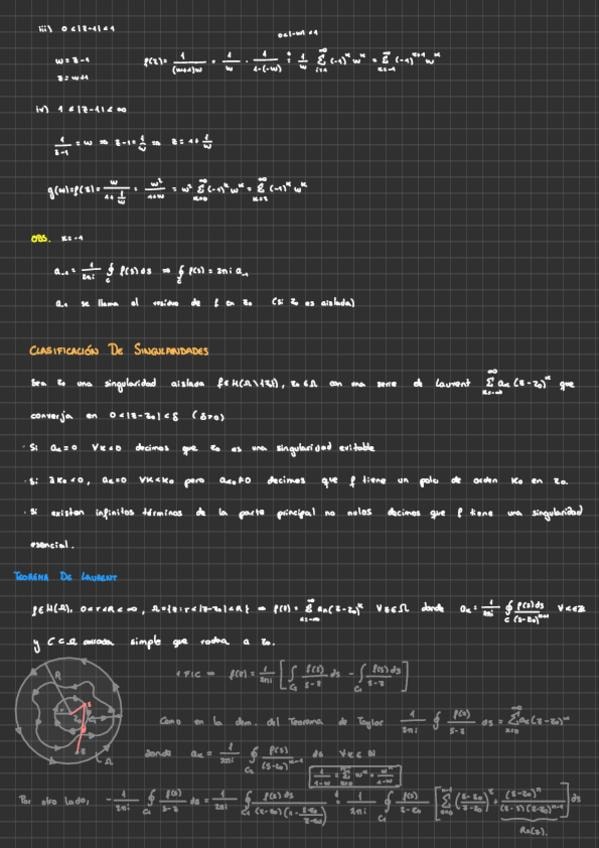 iii) 0<|z-1|<1
0<|-w|<1
w=z-1
z=w+1
f(z)= 1/((w+1)w) = 1/w · 1/(1-(-w)) = 1/w ∑ (-1)^k w^k = ∑ (-1)^{k+1} w^k
iv) 1<|z-1|<∞
1/(z-1) = w ⇒ z-1 = 1/w ⇒ z = 1+ 1/w
g(w)=f(z)= w/(1+1/w) = w²/(1+w) = w² ∑_{k=0}^∞ (-1)^k w^k = ∑_{k=2}^∞ (-1)^k w^k
OBS. k=-1
a_{-1} = 1/(2πi) ∮_C f(s)ds ⇒ ∮_C f(s) = 2πi a_{-1}
a_{-1} se llama el residuo de f en z₀ (si z₀ es aislada)
CLASIFICACIÓN DE SINGULARIDADES
Sea z₀ una singularidad aislada f∈H(Ω\{z₀}), z₀∈Ω con una serie de Laurent ∑_{k=-∞}^∞ a_k (z-z₀)^k que
converja en 0<|z-z₀|<δ (δ>0)
· Si a_k=0 ∀k<0 decimos que z₀ es una singularidad evitable
· Si ∃k₀<0, a_k=0 ∀k<k₀ pero a_{k₀}≠0 decimos que f tiene un polo de orden k₀ en z₀.
· Si existen infinitos términos de la parte principal no nulos decimos que f tiene una singularidad
esencial.
TEOREMA DE LAURENT
f∈H(Ω), 0<r<R<∞, Ω={z: r<|z-z₀|<R} ⇒ f(z)= ∑_{k=-∞}^∞ a_k(z-z₀)^k ∀z∈Ω donde a_k= 1/(2πi) ∮_C f(s)ds/(s-z₀)^{k+1} ∀k∈ℤ
y C⊂Ω cerrada simple que rodea a z₀.
FIC ⇒ f(z)= 1/(2πi) [ ∫ f(s)/(s-z) ds - ∫ f(s)ds/(s-z) ]
Como en la dem. del Teorema de Taylor 1/(2πi) ∮ f(s)/(s-z) ds = ∑_{k=0}^∞ a_k(z-z₀)^k
donde a_k = 1/(2πi) ∮ f(s)/(s-z₀)^{k+1} ds ∀k∈ℕ
Por otro lado,